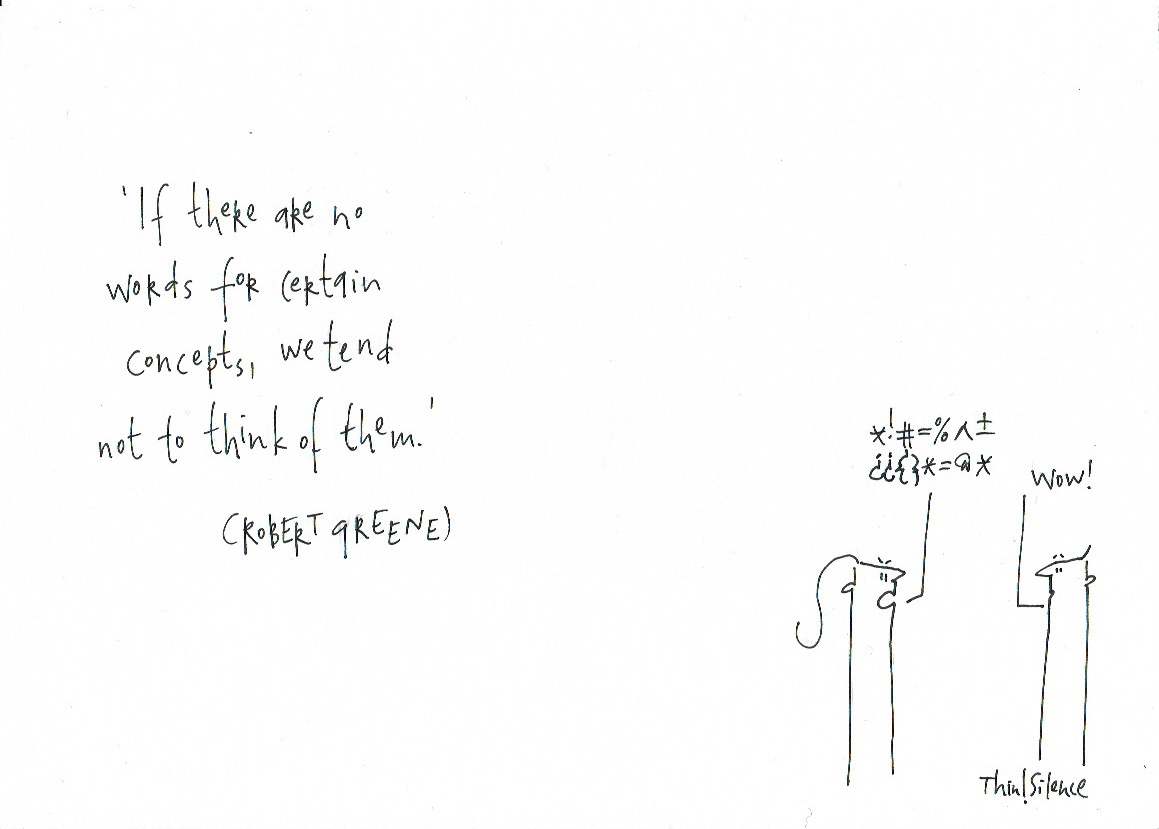 'If there are no
words for certain
concepts, we tend
not to think of them.'
(ROBERT GREENE)
*!#=%^±
¿¿{}*=@*
Wow!
Thin!Silence